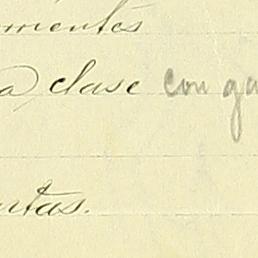 mientes
a clase con ga
utas.